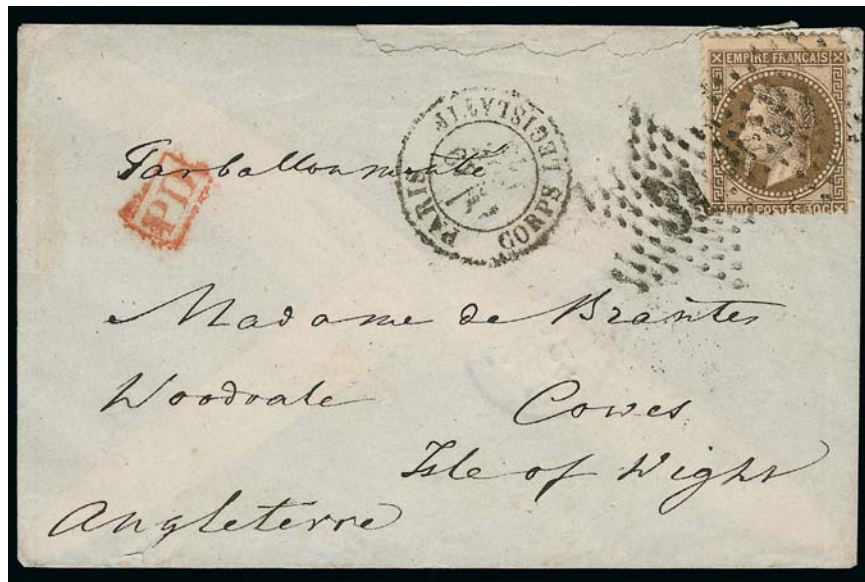 EMPIRE FRANÇAIS
30C POSTES 30C
PARIS CORPS LEGISLATIF
Par ballon monté
PD
Madame de Brantes
Woodvale Cowes
Isle of Wight
Angleterre